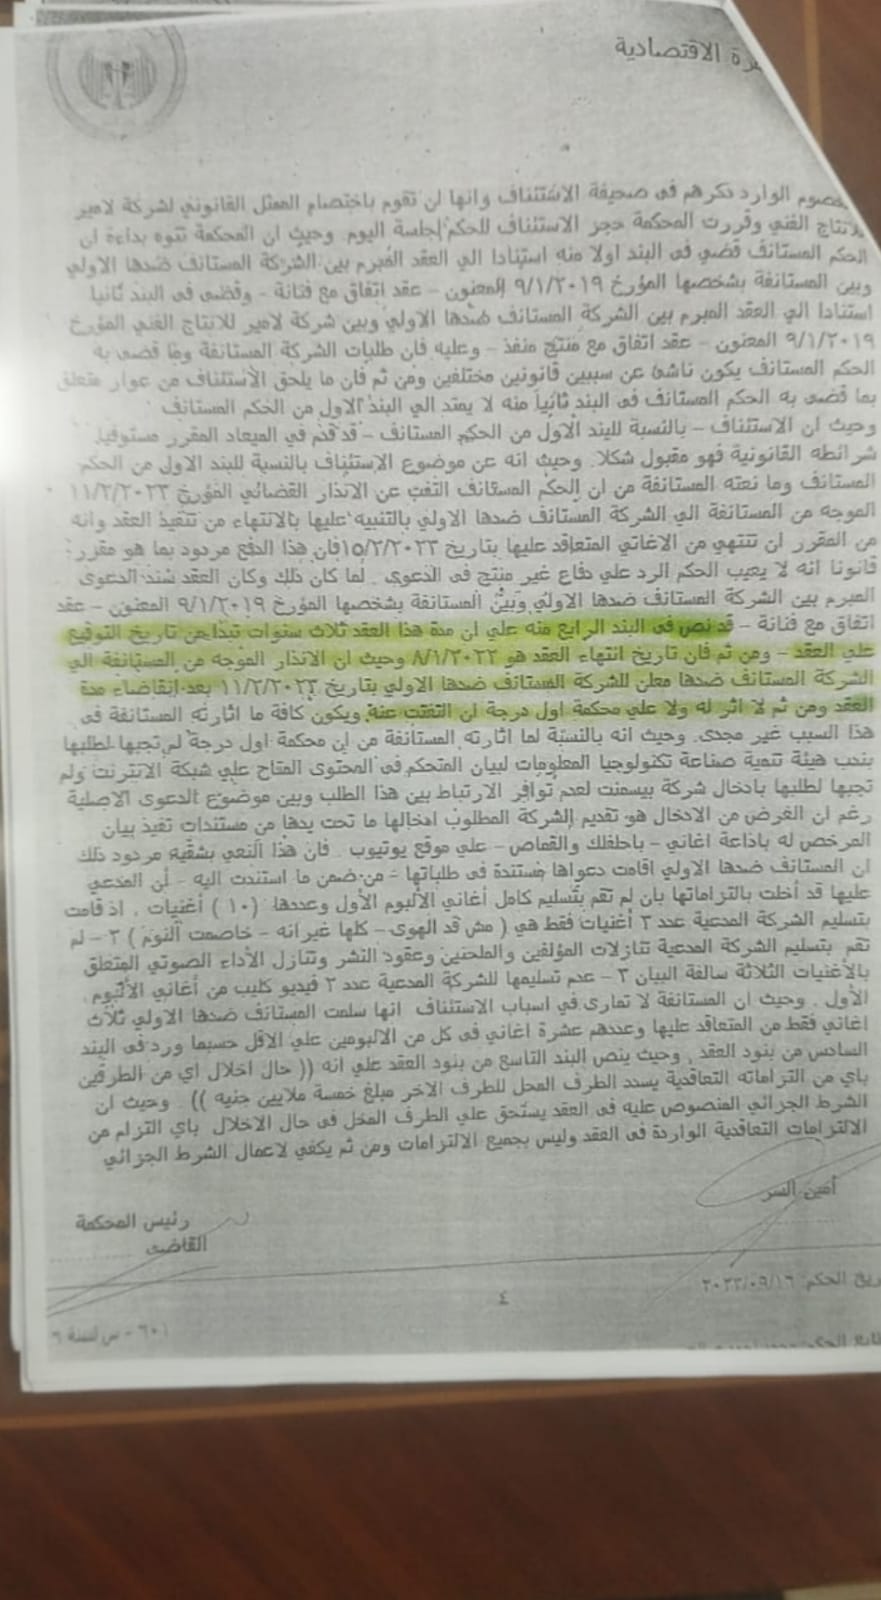 الاقتصادية
الوارد ذكرهم فى صحيفة الاستئناف وانها لن تقوم باختصام الممثل القانوني لشركة لامير
للانتاج الفني وقررت المحكمة حجز الاستئناف للحكم لجلسة اليوم. وحيث ان المحكمة تنوه بداءة ان
الحكم المستانف قضي فى البند اولا منه استنادا الي العقد المبرم بين الشركة المستانف ضدها الاولي
وبين المستانفة بشخصها المؤرخ ٩/١/٢٠١٩ المعنون – عقد اتفاق مع فنانة – وقضى فى البند ثانيا
استنادا الي العقد المبرم بين الشركة المستانف ضدها الاولي وبين شركة لامير للانتاج الفني المؤرخ
٩/١/٢٠١٩ المعنون – عقد اتفاق مع منتج منفذ – وعليه فإن طلبات الشركة المستانفة وما قضى به
الحكم المستانف يكون ناشئ عن سببين قانونين مختلفين ومن ثم فان ما يلحق الأستئناف من عوار متعلق
بما قضى به الحكم المستانف فى البند ثانياً منه لا يمتد الي البند الاول من الحكم المستانف
وحيث ان الاستئناف – بالنسبة للبند الاول من الحكم المستانف – قد قدم في الميعاد المقرر مستوفيا
شرائطه القانونية فهو مقبول شكلا. وحيث انه عن موضوع الإستئناف بالنسبة للبند الاولى من الحكم
المستانف وما نعته المستانفة من ان الحكم المستانف التفت عن الانذار القضائي المؤرخ ١١/٢/٢٠٢٣
الموجه من المستانفة الي الشركة المستانف ضدها الاولي بالتنبيه عليها بالانتهاء من تنفيذ العقد وانه
من المقرر ان تنتهي من الاغاني المتعاقد عليها بتاريخ ١٥/٢/٢٠٢٣ فان هذا الدفع مردود بما هو مقرر
قانونا انه لا يعيب الحكم الرد علي دفاع غير منتج فى الدعوى . لما كان ذلك وكان العقد سند الدعوى
المبرم بين الشركة المستانف ضدها الاولي وبين المستانفة بشخصها المؤرخ ٩/١/٢٠١٩ المعنون – عقد
اتفاق مع فنانة – قد نص فى البند الرابع منه علي ان مدة هذا العقد ثلاث سنوات تبدا من تاريخ التوقيع
علي العقد – ومن ثم فان تاريخ انتهاء العقد هو ٨/١/٢٠٢٢ وحيث ان الانذار الموجه من المستانفة الي
الشركة المستانف ضدها معلن للشركة المستانف ضدها الاولي بتاريخ ١١/٢/٢٠٢٣ بعد انقضاء مدة
العقد ومن ثم لا اثر له ولا علي محكمة اول درجة ان التفتت عنه ويكون كافة ما اثارته المستانفة فى
هذا السبب غير مجدى. وحيث انه بالنسبة لما اثارته المستانفة من ان محكمة اول درجة لم تجبها لطلبها
بندب هيئة تنمية صناعة تكنولوجيا المعلومات لبيان المتحكم فى المحتوى المتاح علي شبكة الانترنت ولم
تجبها لطلبها بادخال شركة بيسمنت لعدم توافر الارتباط بين هذا الطلب وبين موضوع الدعوى الاصلية
رغم ان الغرض من الادخال هو تقديم الشركة المطلوب ادخالها ما تحت يدها من مستندات تفيد بيان
المرخص له باذاعة اغاني – باحلفلك والقماص – علي موقع يوتيوب . فان هذا النعي بشقيه مردود ذلك
ان المستانف ضدها الاولي اقامت دعواها مستندة فى طلباتها – من ضمن ما استندت اليه – أن المدعي
عليها قد أخلت بالتزاماتها بان لم تقم بتسليم كامل أغاني الألبوم الأول وعددها (١٠) أغنيات . اذ قامت
بتسليم الشركة المدعية عدد ٣ أغنيات فقط هي ( مش قد الهوى – كلها غيرانه – خاصمت النوم ) ٢ – لم
تقم بتسليم الشركة المدعية تنازلات المؤلفين والملحنين وعقود النشر وتنازل الأداء الصوتي المتعلق
بالأغنيات الثلاثة سالفة البيان ٣ – عدم تسليمها للشركة المدعية عدد ٢ فيديو كليب من أغاني الألبوم
الأول . وحيث ان المستانفة لا تمارى في اسباب الاستئناف انها سلمت المستانف ضدها الاولي ثلاث
اغاني فقط من المتعاقد عليها وعددهم عشرة اغاني فى كل من الالبومين علي الاقل حسبما ورد فى البند
السادس من بنود العقد , وحيث ينص البند التاسع من بنود العقد علي انه (( حال اخلال اي من الطرفين
باي من التزاماته التعاقدية يسدد الطرف المخل للطرف الاخر مبلغ خمسة ملايين جنيه )) . وحيث ان
الشرط الجزائي المنصوص عليه فى العقد يستحق علي الطرف المخل فى حال الاخلال باي التزام من
الالتزامات التعاقدية الواردة فى العقد وليس بجميع الالتزامات ومن ثم يكفي لاعمال الشرط الجزائي
أمين السر
رئيس المحكمة
القاضى
الحكم:
٤
٦٠١ – س لسنة